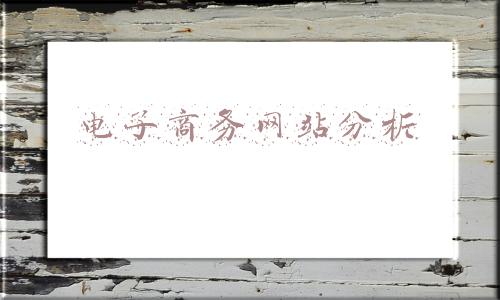 电子商务网站分析